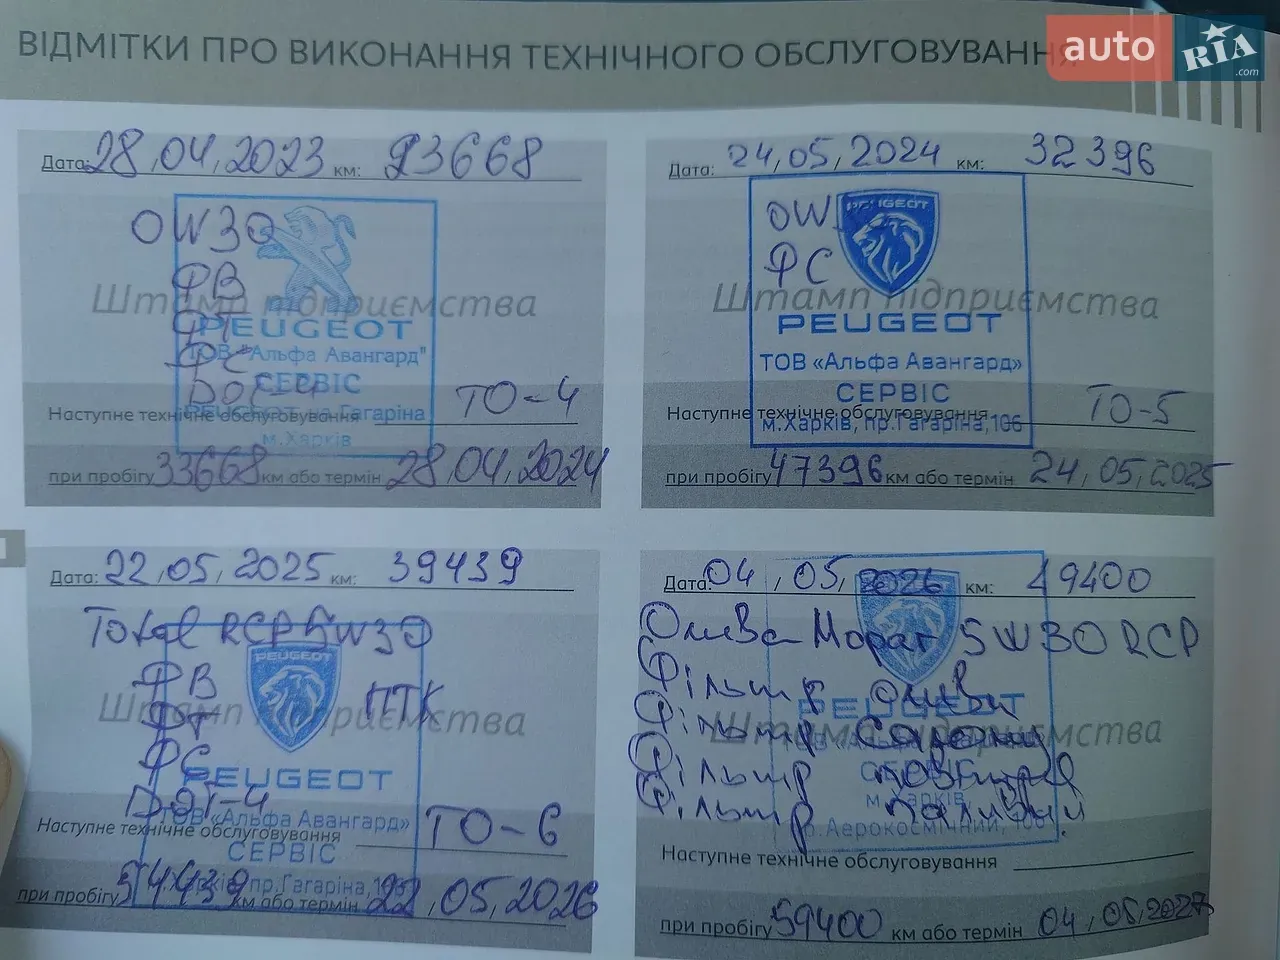 ВІДМІТКИ ПРО ВИКОНАННЯ ТЕХНІЧНОГО ОБСЛУГОВУВАННЯ
auto RIA .com
Дата: 28,04,2023 км: 23668
OW30
ФВ
Штамп підприємства
ФТ
PEUGEOT
ФС
ТОВ "Альфа Авангард"
DOT-4
СЕРВІС
PEUGEOT на Гагаріна
м.Харків
Наступне технічне обслуговування ТО-4
при пробігу 33668 км або термін 28,04,2024
Дата: 24,05,2024 км: 32396
OW
PEUGEOT
ФС
Штамп підприємства
PEUGEOT
ТОВ «Альфа Авангард»
СЕРВІС
м.Харків, пр.Гагаріна,106
Наступне технічне обслуговування ТО-5
при пробігу 47396 км або термін 24,05,2025
Дата: 22,05,2025 км: 39439
Total RCP 5W30
PEUGEOT
ФВ ПТК
Штамп підприємства
ФТ
ФС
PEUGEOT
DOT-4
ТОВ «Альфа Авангард»
СЕРВІС
пр.Гагаріна,106
Наступне технічне обслуговування ТО-6
при пробігу 54439 км або термін 22,05,2026
Дата: 04,05,2026 км: 49400
Олива Мотат 5W30 RCP
Фільтр оливи
PEUGEOT
Штамп підприємства
Фільтр Салону
Фільтр повітря
СЕРВІС
м.Харків,
Фільтр паливний
пр.Аерокосмічний, 106
Наступне технічне обслуговування
при пробігу 59400 км або термін 04,05,2027